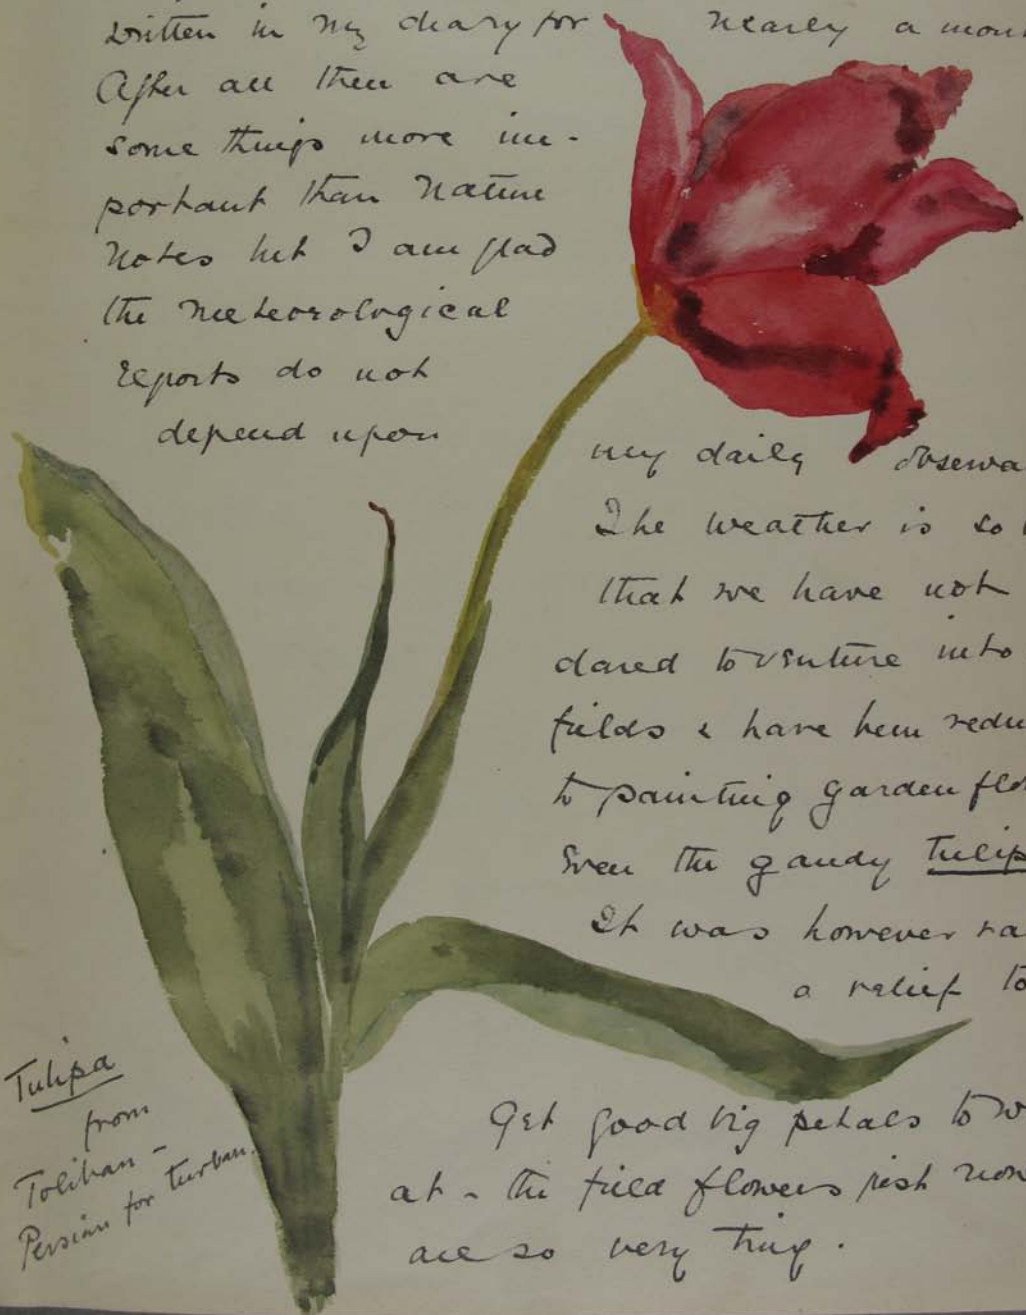 written in my diary for nearly a mon
After all there are
some things more im-
portant than Nature
Notes but I am glad
the Meteorological
Reports do not
depend upon
my daily observa
The weather is so
that we have not
dared to venture into
fields & have been redu
to painting garden flo
Even the gaudy Tulip
It was however ra
a relief to
Get good big petals to w
at - the field flowers just now
are so very tiny.
Tulipa
from
Toliban -
Persian for turban.